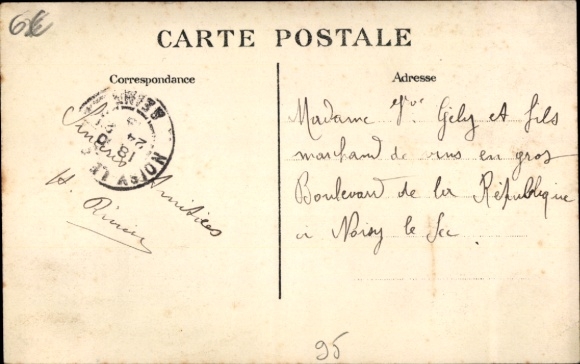 6€
CARTE POSTALE
Correspondance
Adresse
Sincères
Amitiés
H.
NOISY LE
SEINE
18
24
Madame Vve Gély et fils
marchand de vins en gros
Boulevard de la République
à Noisy le Sec.
95